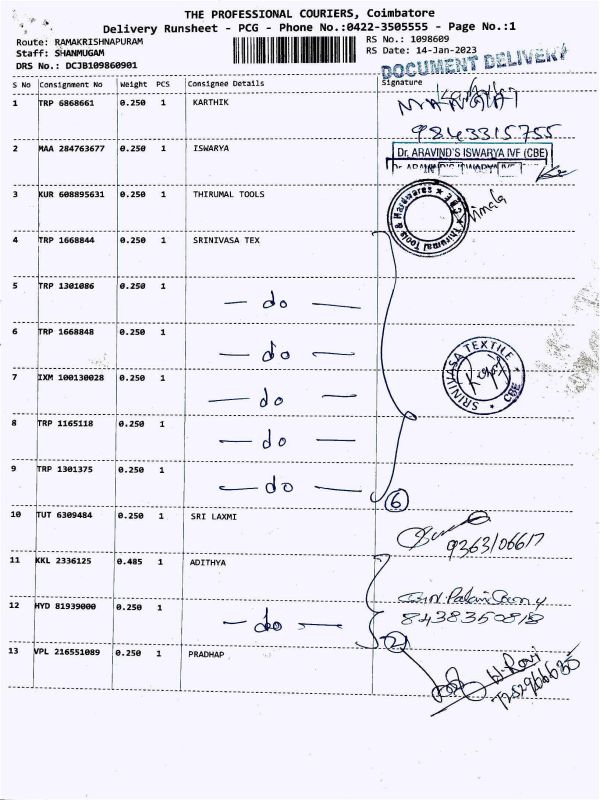 THE PROFESSIONAL COURIERS, Coimbatore
Delivery Runsheet - PCG - Phone No.:0422-3505555 - Page No.:1
Route: RAMAKRISHNAPURAM
RS No.: 1098609
Staff: SHANMUGAM
RS Date: 14-Jan-2023
DRS No.: DCJB109860901
DOCUMENT DELIVERY
S No Consignment No Weight PCS Consignee Details Signature
1 TRP 6868661 0.250 1 KARTHIK
9843315755
2 MAA 284763677 0.250 1 ISWARYA
Dr. ARAVIND'S ISWARYA IVF (CBE)
3 KUR 608895631 0.250 1 THIRUMAL TOOLS
Thirumal Tools & Hardwares
4 TRP 1668844 0.250 1 SRINIVASA TEX
5 TRP 1301086 0.250 1 — do —
6 TRP 1668848 0.250 1 — do —
7 IXM 100130028 0.250 1 — do —
SRINIVASA TEXTILE CBE
8 TRP 1165118 0.250 1 — do —
9 TRP 1301375 0.250 1 — do —
6
10 TUT 6309484 0.250 1 SRI LAXMI
11 KKL 2336125 0.485 1 ADITHYA
12 HYD 81939000 0.250 1 — do —
2
13 VPL 216551089 0.250 1 PRADHAP